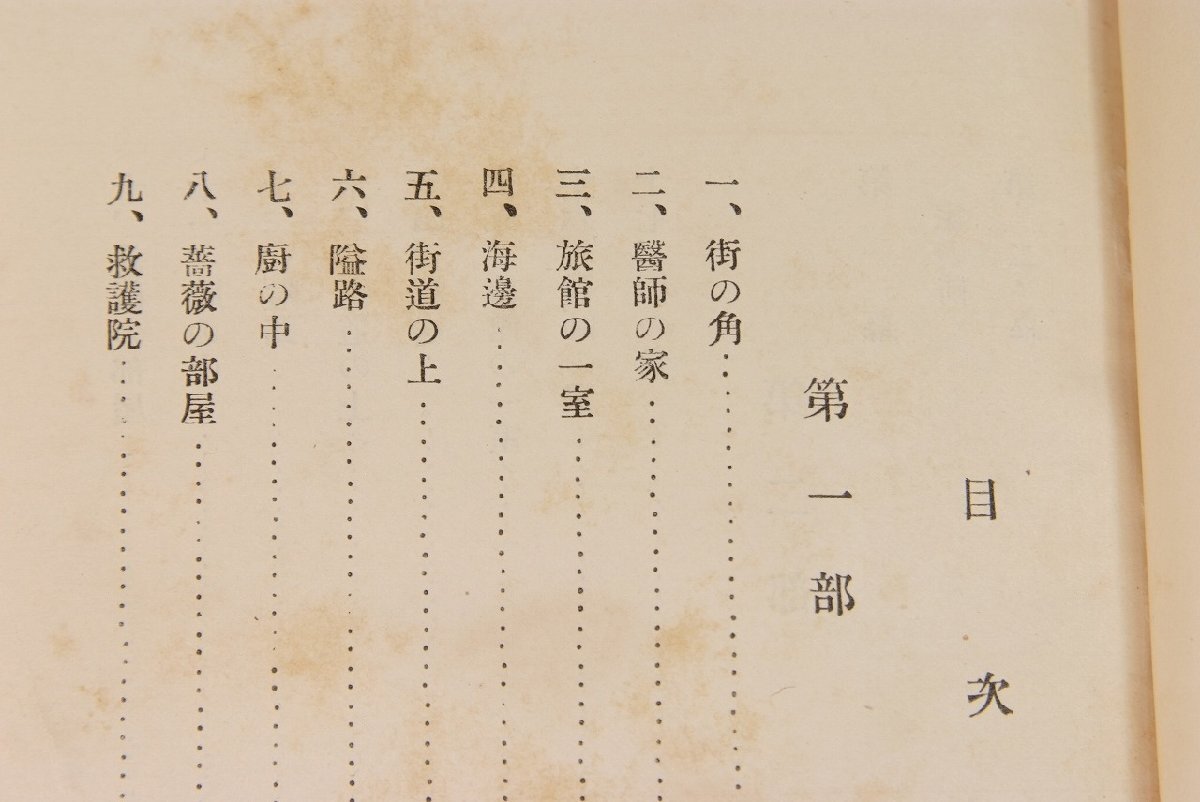 目次
第一部
一、街の角
二、醫師の家
三、旅館の一室
四、海邊
五、街道の上
六、隘路
七、廚の中
八、薔薇の部屋
九、救護院